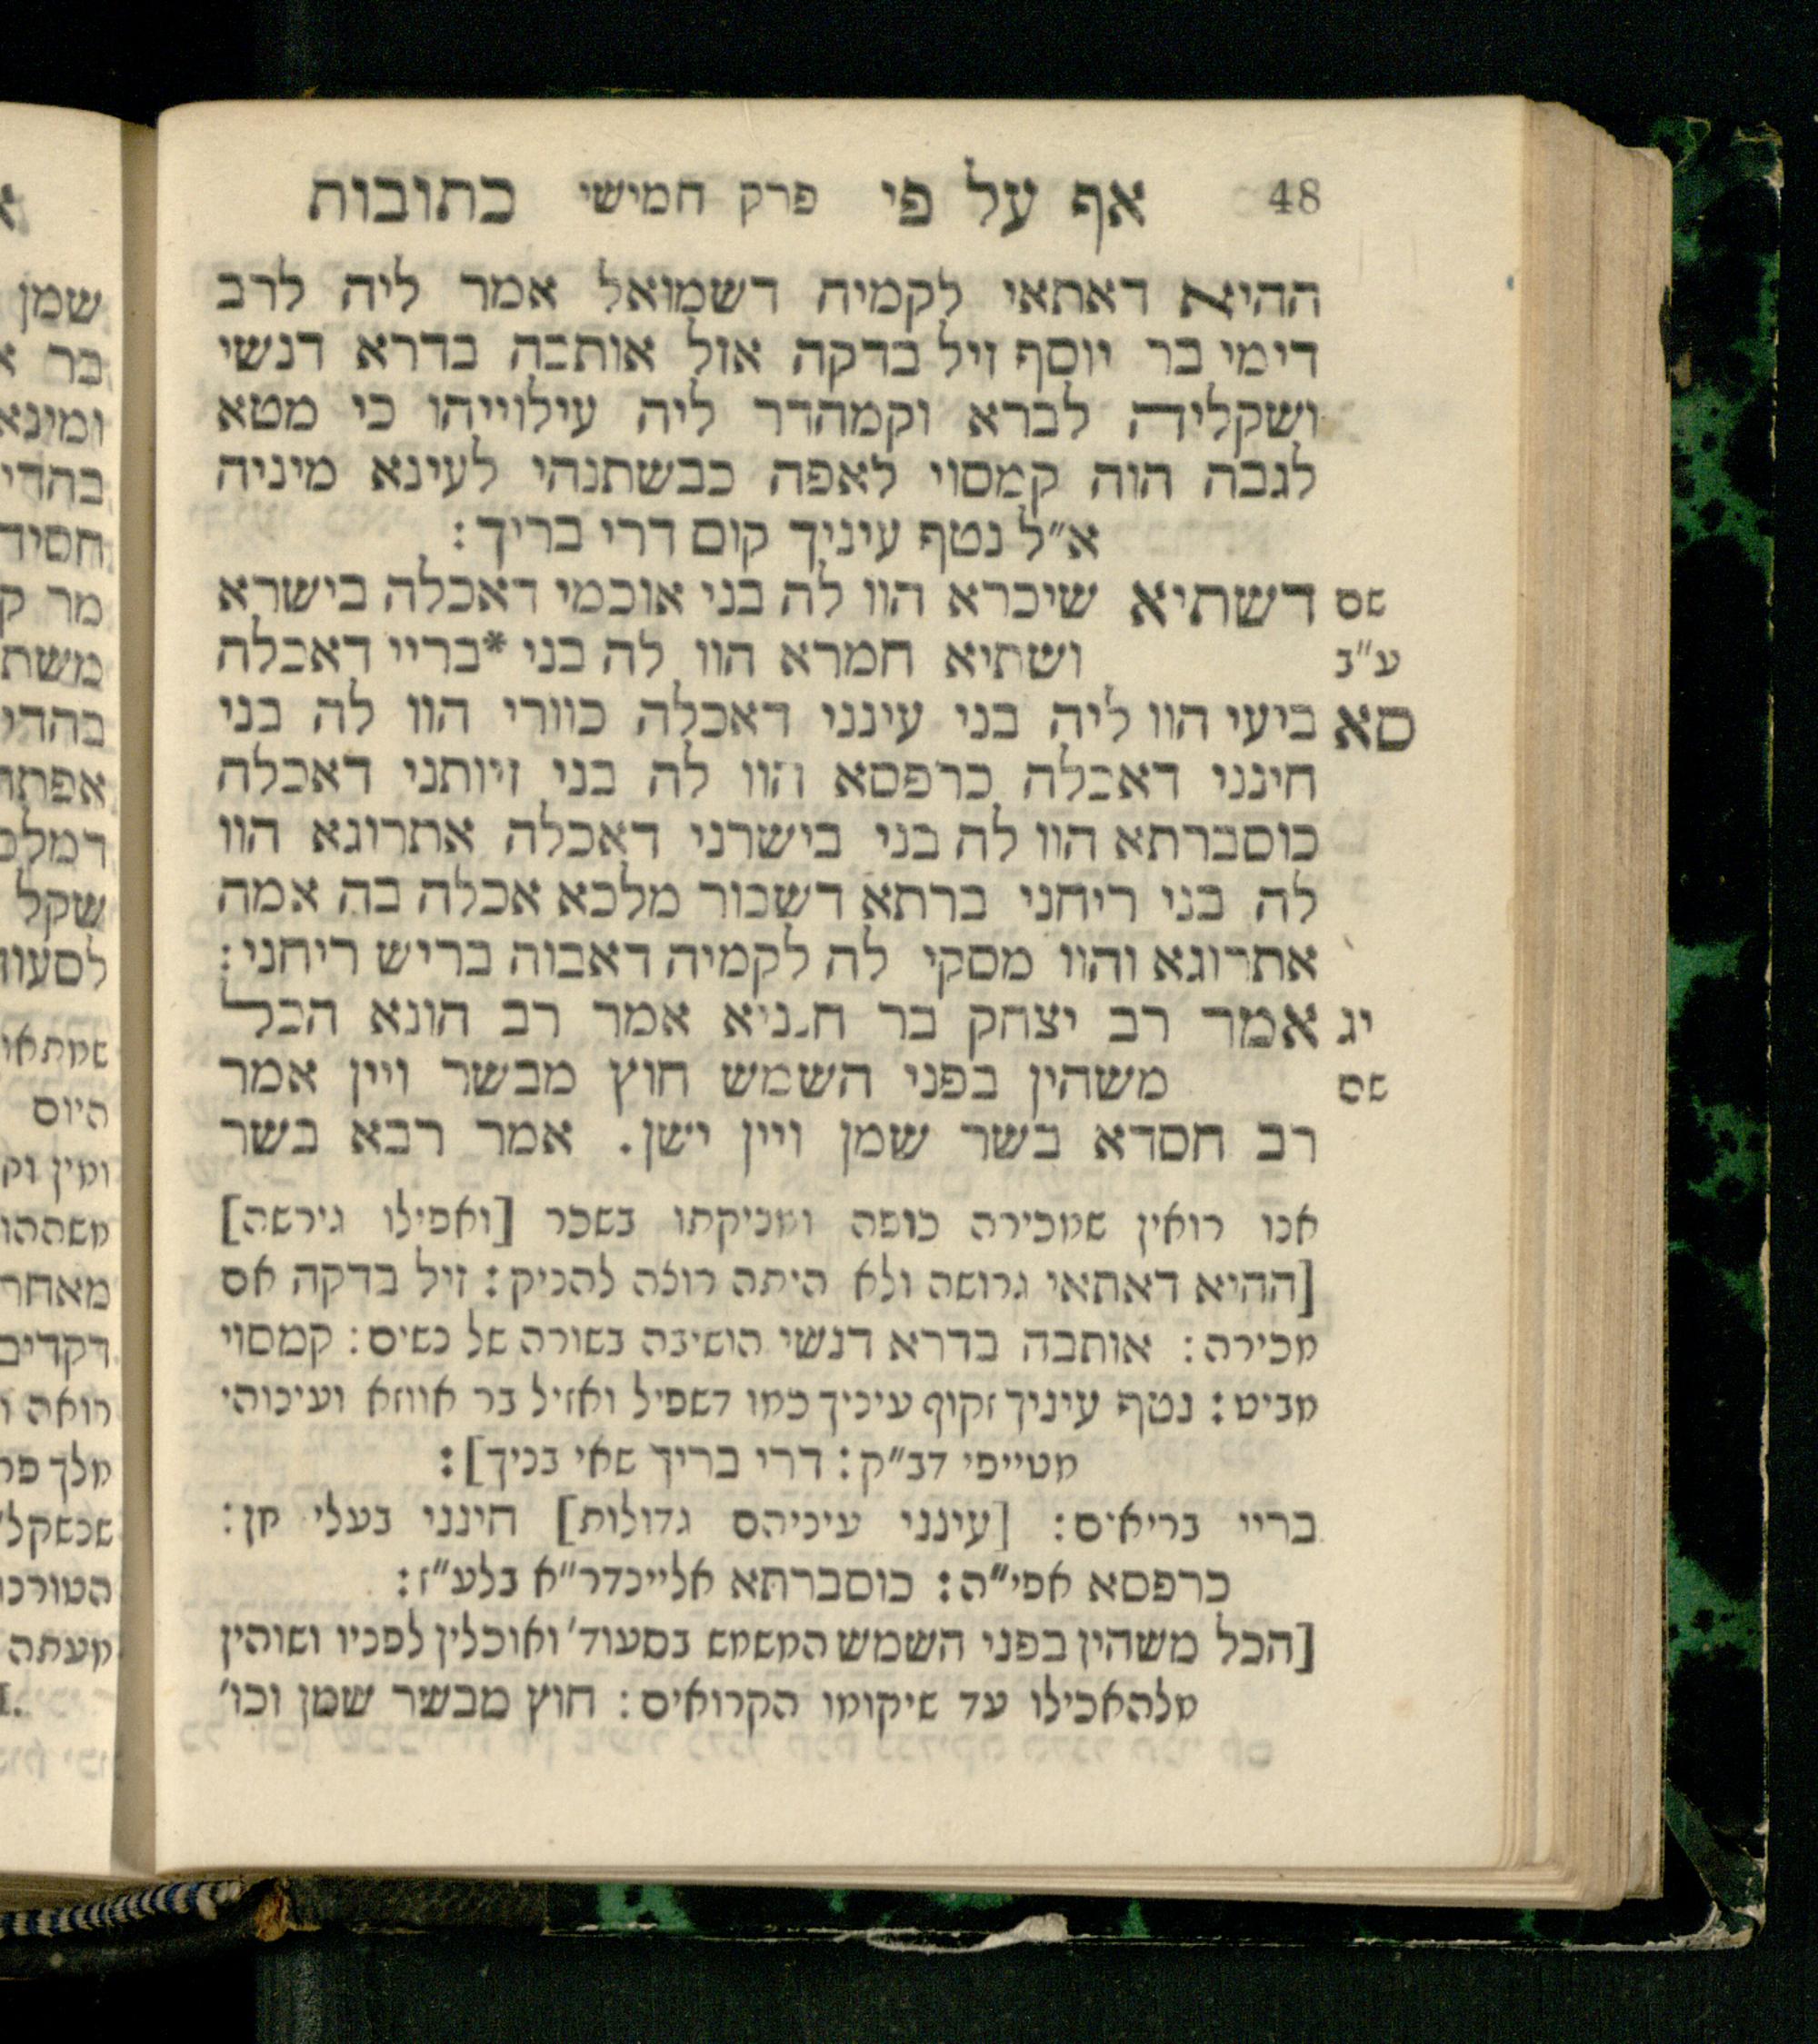 48 אף על פי פרק חמישי כתובות
ההיא דאתאי לקמיה דשמואל אמר ליה לרב
דימי בר יוסף זיל בדקה אזל אותבה בדרא דנשי
ושקליה לברא וקמהדר ליה עילוייהו כי מטא
לגבה הוה קמסוי לאפה כבשתנהי לעינא מיניה
א״ל נטף עיניך קום דרי בריך:
שם דשתיא שיכרא הוו לה בני אוכמי דאכלה בישרא
ע״ב ושתיא חמרא הוו לה בני *בריי דאכלה
סא ביעי הוו ליה בני עינני דאכלה כוורי הוו לה בני
חינני דאכלה כרפסא הוו לה בני זיותני דאכלה
כוסברתא הוו לה בני בישרני דאכלה אתרוגא הוו
לה בני ריחני ברתא דשבור מלכא אכלה בה אמה
אתרוגא והוו מסקי לה לקמיה דאבוה בריש ריחני:
יג אמר רב יצחק בר חנניא אמר רב הונא הכל
שם משהין בפני השמש חוץ מבשר ויין אמר
רב חסדא בשר שמן ויין ישן. אמר רבא בשר
אנו רואין שמכירה כופה ומניקתו בשכר [ואפילו גירשה]
[ההיא דאתאי גרושה ולא היתה רוצה להניק: זיל בדקה אם
מכירה: אותבה בדרא דנשי הושיבה בשורה של נשים: קמסוי
מביט: נטף עיניך זקוף עיניך כמו דשפיל ואזיל בר אווזא ועינוהי
מטייפי דב״ק: דרי בריך שאי בניך]:
בריי בריאים: [עינני עיניהם גדולות] חינני בעלי חן:
כרפסא אפי״ה: כוסברתא אלייכדר״א בלע״ז:
[הכל משהין בפני השמש המשמש בסעוד׳ ואוכלין לפניו ושוהין
מלהאכילו עד שיקומו הקרואים: חוץ מבשר שמן וכו׳
שמן
בר
ומינא
בהדי
חסיד
מר
משת
בהדי
שקל
שמתאו
היום
ומין
משהו
מאחר
דקדים
רואה
מלך
מעתה